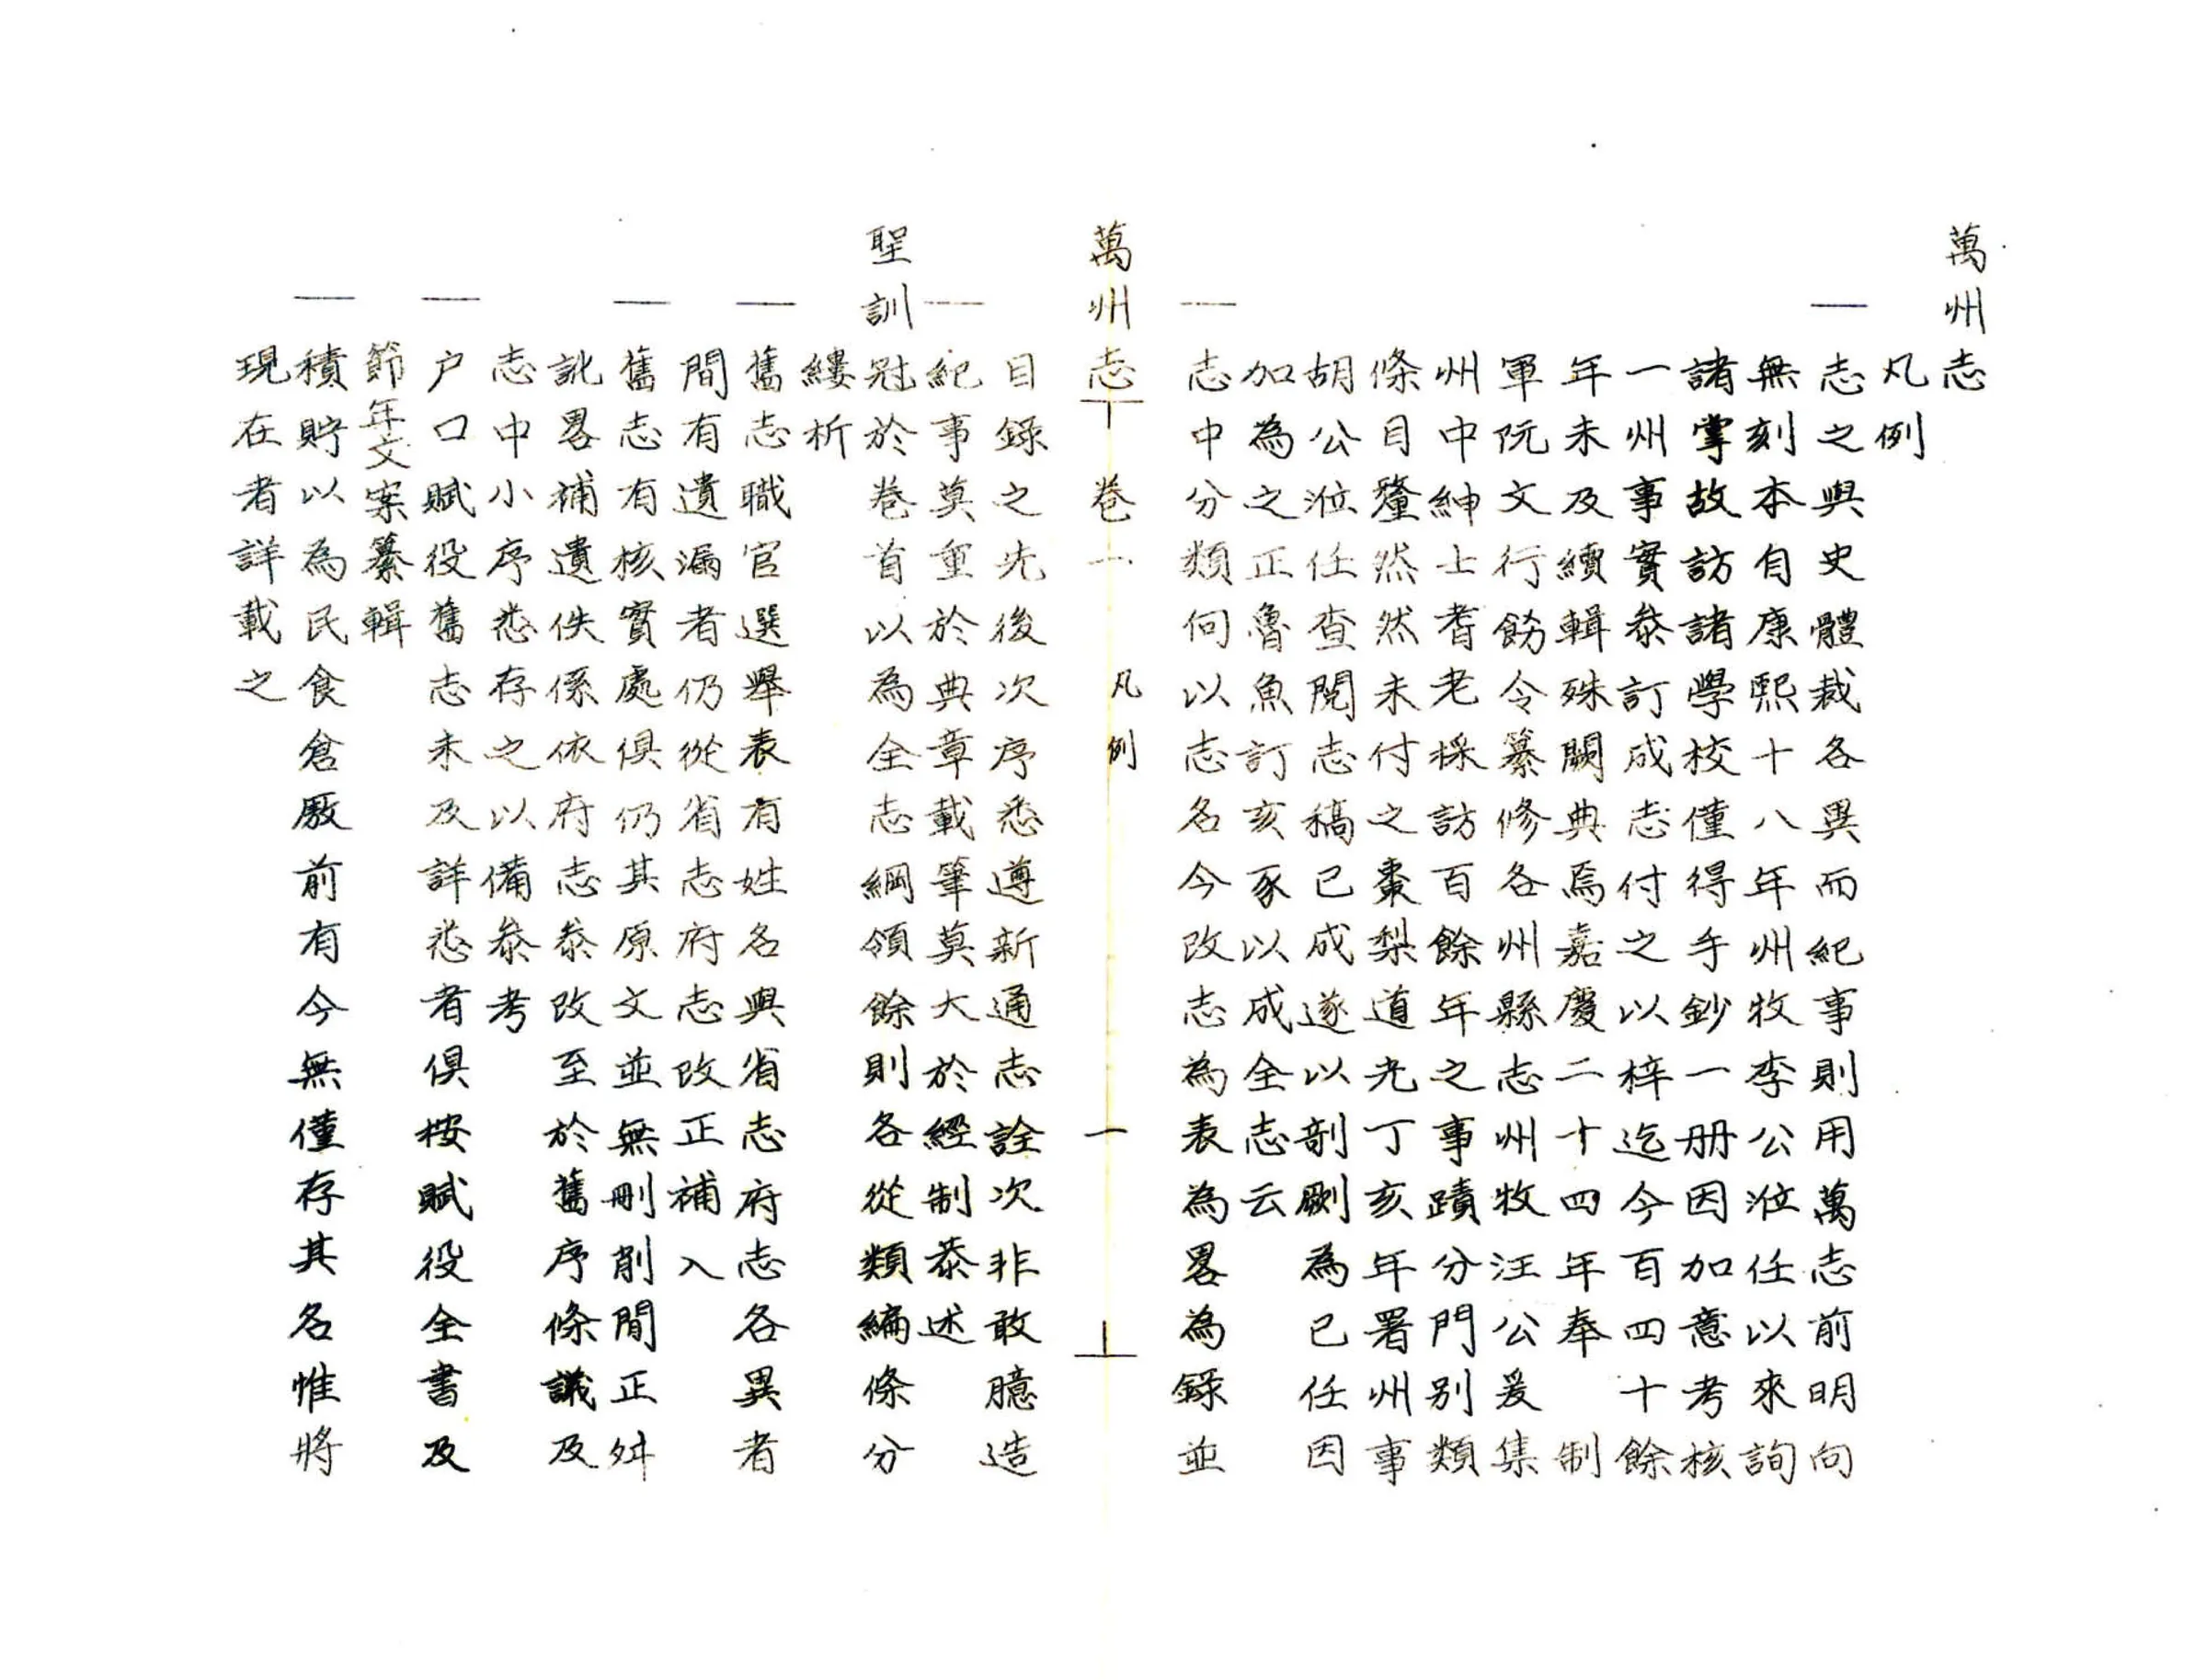 萬州志
凡例
一志之與史體裁各異而紀事則用萬志前明向
無刻本自康熙十八年州牧李公涖任以來詢
諸掌故訪諸學校僅得手鈔一册因加意考核
一州事實叅訂成志付之以梓迄今百四十餘
年未及續輯殊闕典焉嘉慶二十四年奉制
軍阮文行飭令纂修各州縣志州牧汪公爰集
州中紳士耆老採訪百餘年之事蹟分門别類
條目釐然然未付之棗梨道光丁亥年署州事
胡公涖任查閲志稿已成遂以剞劂為已任因
加為之正魯魚訂亥豕以成全志云
一志中分類何以志名今改志為表為畧為録並
萬州志 卷一 凡例 一
目録之先後次序悉遵新通志詮次非敢臆造
一紀事莫重於典章載筆莫大於經制恭述
聖訓冠於卷首以為全志綱領餘則各從類編條分
縷析
一舊志職官選舉表有姓名與省志府志各異者
間有遺漏者仍從省志府志改正補入
一舊志有核實處俱仍其原文並無刪削間正舛
訛畧補遺佚係依府志叅改至於舊序條議及
志中小序悉存之以備叅考
一户口賦役舊志未及詳悉者俱按賦役全書及
節年文案纂輯
一積貯以為民食倉廒前有今無僅存其名惟將
現在者詳載之